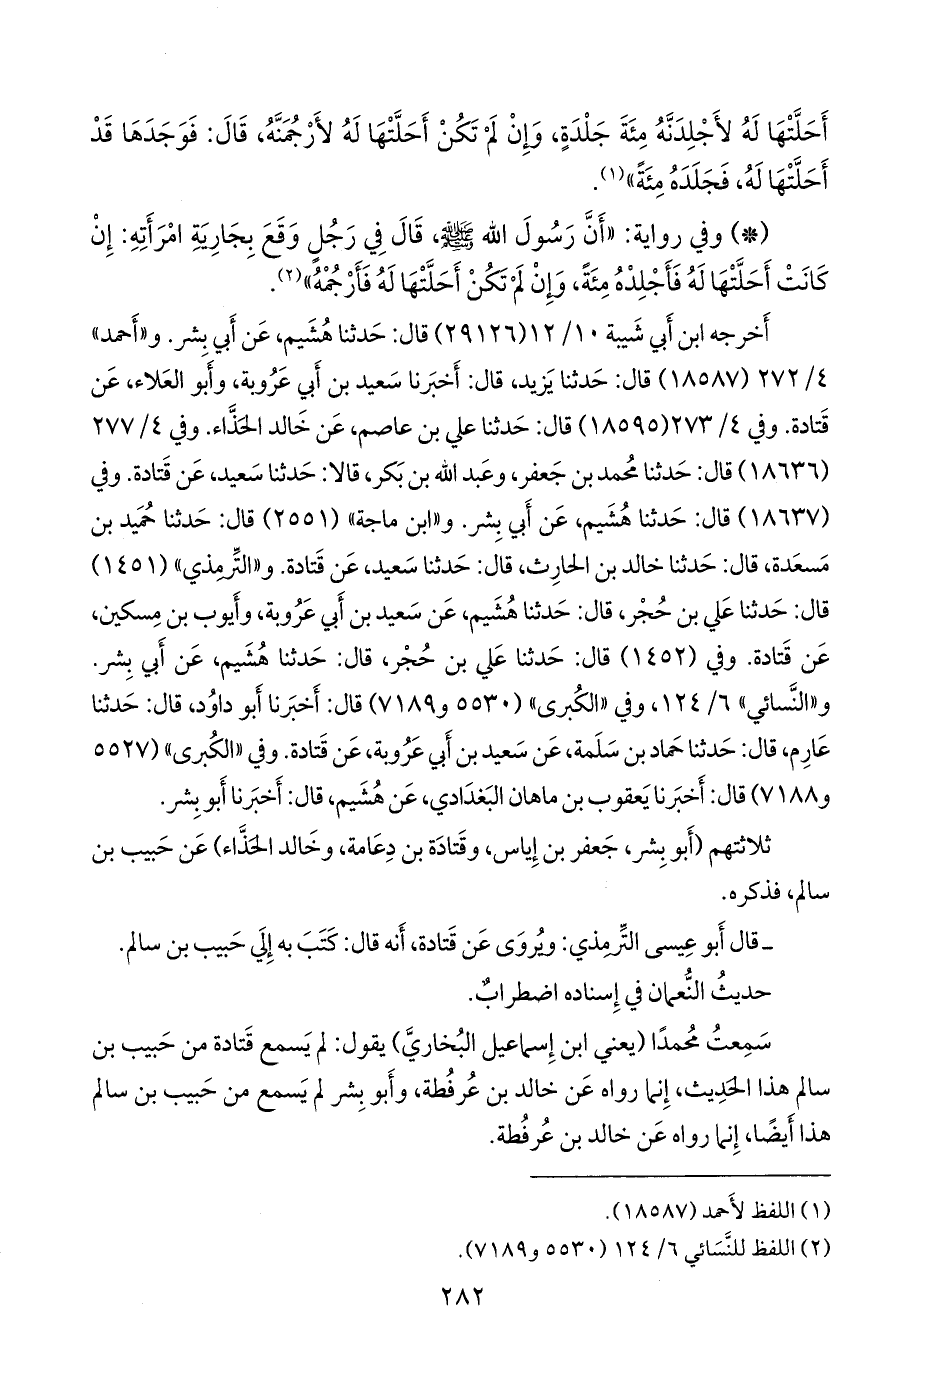 أَحَلَّتْهَا لَهُ لأَجْلِدَنَّهُ مِئَةَ جَلْدَةٍ، وَإِنْ لَمْ تَكُنْ أَحَلَّتْهَا لَهُ لأَرْجُمَنَّهُ، قَالَ: فَوَجَدَهَا قَدْ
أَحَلَّتْهَا لَهُ، فَجَلَدَهُ مِئَةً»(١).
(*) وفي رواية: «أَنَّ رَسُولَ الله ﷺ، قَالَ فِي رَجُلٍ وَقَعَ بِجَارِيَةِ امْرَأَتِهِ: إِنْ
كَانَتْ أَحَلَّتْهَا لَهُ فَأَجْلِدْهُ مِئَةً، وَإِنْ لَمْ تَكُنْ أَحَلَّتْهَا لَهُ فَأَرْجُمْهُ»(٢).
أَخرجه ابن أَبي شيبة ١٠/ ١٢(٢٩١٢٦) قال: حَدثنا هُشَيم، عَن أَبي بِشر. و«أَحمد»
٤/ ٢٧٢ (١٨٥٨٧) قال: حَدثنا يَزيد، قال: أَخبَرنا سَعيد بن أَبي عَرُوبة، وأَبو العَلاء، عَن
قَتادة. وفي ٤/ ٢٧٣(١٨٥٩٥) قال: حَدثنا علي بن عاصم، عَن خَالد الحَذَّاء. وفي ٤/ ٢٧٧
(١٨٦٣٦) قال: حَدثنا مُحمد بن جَعفر، وعَبد الله بن بَكر، قالا: حَدثنا سَعيد، عَن قَتادة. وفي
(١٨٦٣٧) قال: حَدثنا هُشَيم، عَن أَبي بِشر. و«ابن ماجة» (٢٥٥١) قال: حَدثنا حُمَيد بن
مَسعَدة، قال: حَدثنا خالد بن الحارِث، قال: حَدثنا سَعيد، عَن قَتادة. و«التِّرمِذي» (١٤٥١)
قال: حَدثنا علي بن حُجْر، قال: حَدثنا هُشَيم، عَن سَعيد بن أَبي عَرُوبة، وأَيوب بن مِسكين،
عَن قَتادة. وفي (١٤٥٢) قال: حَدثنا علي بن حُجْر، قال: حَدثنا هُشَيم، عَن أَبي بِشر.
و«النَّسائي» ٦/ ١٢٤، وفي «الكُبرى» (٥٥٣٠ و٧١٨٩) قال: أَخبَرنا أَبو داوُد، قال: حَدثنا
عَارِم، قال: حَدثنا حَماد بن سَلَمة، عَن سَعيد بن أَبي عَرُوبة، عَن قَتادة. وفي «الكُبرى» (٥٥٢٧
و٧١٨٨) قال: أَخبَرنا يَعقوب بن ماهان البَغدَادي، عَن هُشَيم، قال: أَخبَرنا أَبو بِشر.
ثلاثتهم (أَبو بِشر، جَعفر بن إِياس، وقَتادَة بن دِعَامة، وخَالد الحَذَّاء) عَن حَبيب بن
سالم، فذكره.
ـ قال أَبو عِيسى التِّرمِذي: ويُروَى عَن قَتادة، أَنه قال: كَتَبَ به إِلَي حَبيب بن سالم.
حديثُ النُّعمان في إِسناده اضطرابٌ.
سَمِعتُ مُحمدًا (يعني ابن إِسماعيل البُخاريَّ) يقول: لم يَسمع قَتادة من حَبيب بن
سالم هذا الحَدِيث، إِنما رواه عَن خالد بن عُرفُطة، وأَبو بِشر لم يَسمع من حَبيب بن سالم
هذا أَيضًا، إِنما رواه عَن خالد بن عُرفُطة.
(١) اللفظ لأَحمد (١٨٥٨٧).
(٢) اللفظ للنَّسَائي ٦/ ١٢٤ (٥٥٣٠ و٧١٨٩).
٢٨٢